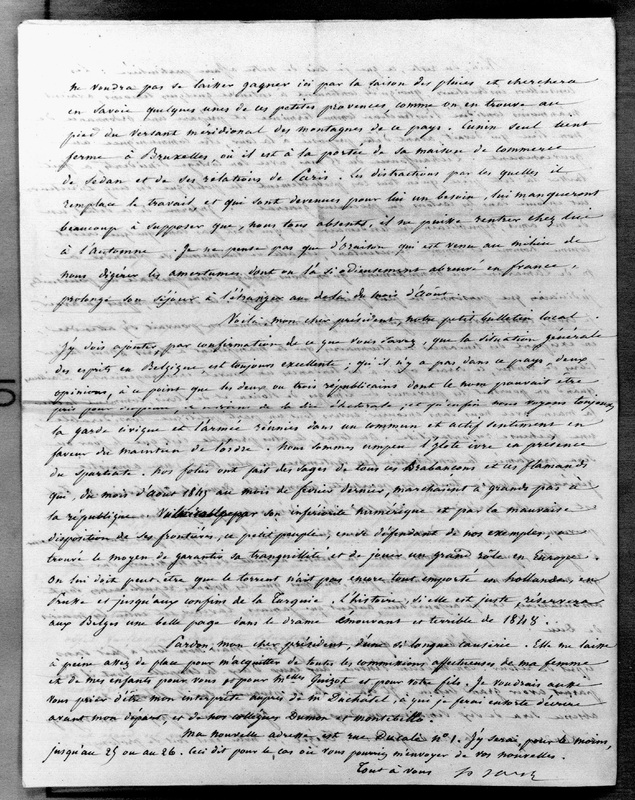 ne voudra pas se laisser gagner ici par la saison des pluies et cherchera
en Savoie quelques unes de ces petites provinces, comme on en trouve au
pied du versant méridional des montagnes de ce pays. Cunin seul tient
ferme à Bruxelles, où il est à la portée de sa maison de commerce
de Sedan et de ses relations de Paris. Les distractions par les quelles il
remplace le travail, et qui sont devenues pour lui un besoin, lui manqueront
beaucoup à supposer que, nous tous absents, il ne puisse rentrer chez lui
à l'automne. Je ne pense pas que d'Oraison qui est venu au milieu de
nous digérer les amertumes dont on l'a si odieusement abreuvé en france,
prolonge son séjour à l'étranger au delà du mois d'Août.
Voilà, mon cher président, notre petit bulletin local.
J'y dois ajouter, par confirmation de ce que vous savez, que la situation générale
des esprits en Belgique, est toujours excellente; qu'il n'y a pas dans ce pays deux
opinions, à ce point que les deux ou trois républicains dont le nom pouvait être
pris pour et qu'enfin nous voyons toujours
la garde civique et l'armée réunies dans un commun et actif sentiment en
faveur du maintien de l'ordre. Nous sommes un peu l'Ilote ivre en présence
du Spartiate. Nos folies ont fait des sages de tous ces Brabançons et ces flamands
qui, du mois d'Août 1845 au mois de février dernier, marchaient à grands pas à
la république. par son infériorité numérique et par la mauvaise
disposition de ses frontières, ce petit peuple, en se défendant de nos exemples, a
trouvé le moyen de garantir sa tranquillité et de jouer un grand rôle en Europe.
On lui doit peut être que le torrent n'ait pas encore tout emporté en hollande, en
Prusse et jusqu'aux confins de la Turquie. L'histoire, si elle est juste, réservera
aux Belges une belle page dans le drame émouvant et terrible de 1848.
Pardon, mon cher président, d'une si longue causerie. Elle me laisse
à peine assez de place pour m'acquitter de toutes les commissions affectueuses de ma femme
et de mes enfants pour vous, pour Melles Guizot et pour votre fils. Je voudrais aussi
vous prier d'être mon interprète auprès de Mr Duchâtel, à qui je ferai en sorte d'écrire
avant mon départ, et de nos collègues Dumon et Montebello.
Ma nouvelle adresse est rue Ducale no 1. J'y serai, pour le moins,
jusqu'au 25 ou au 26. Ceci dit pour le cas où vous pourriez m'envoyer de vos nouvelles.
Tout à vous